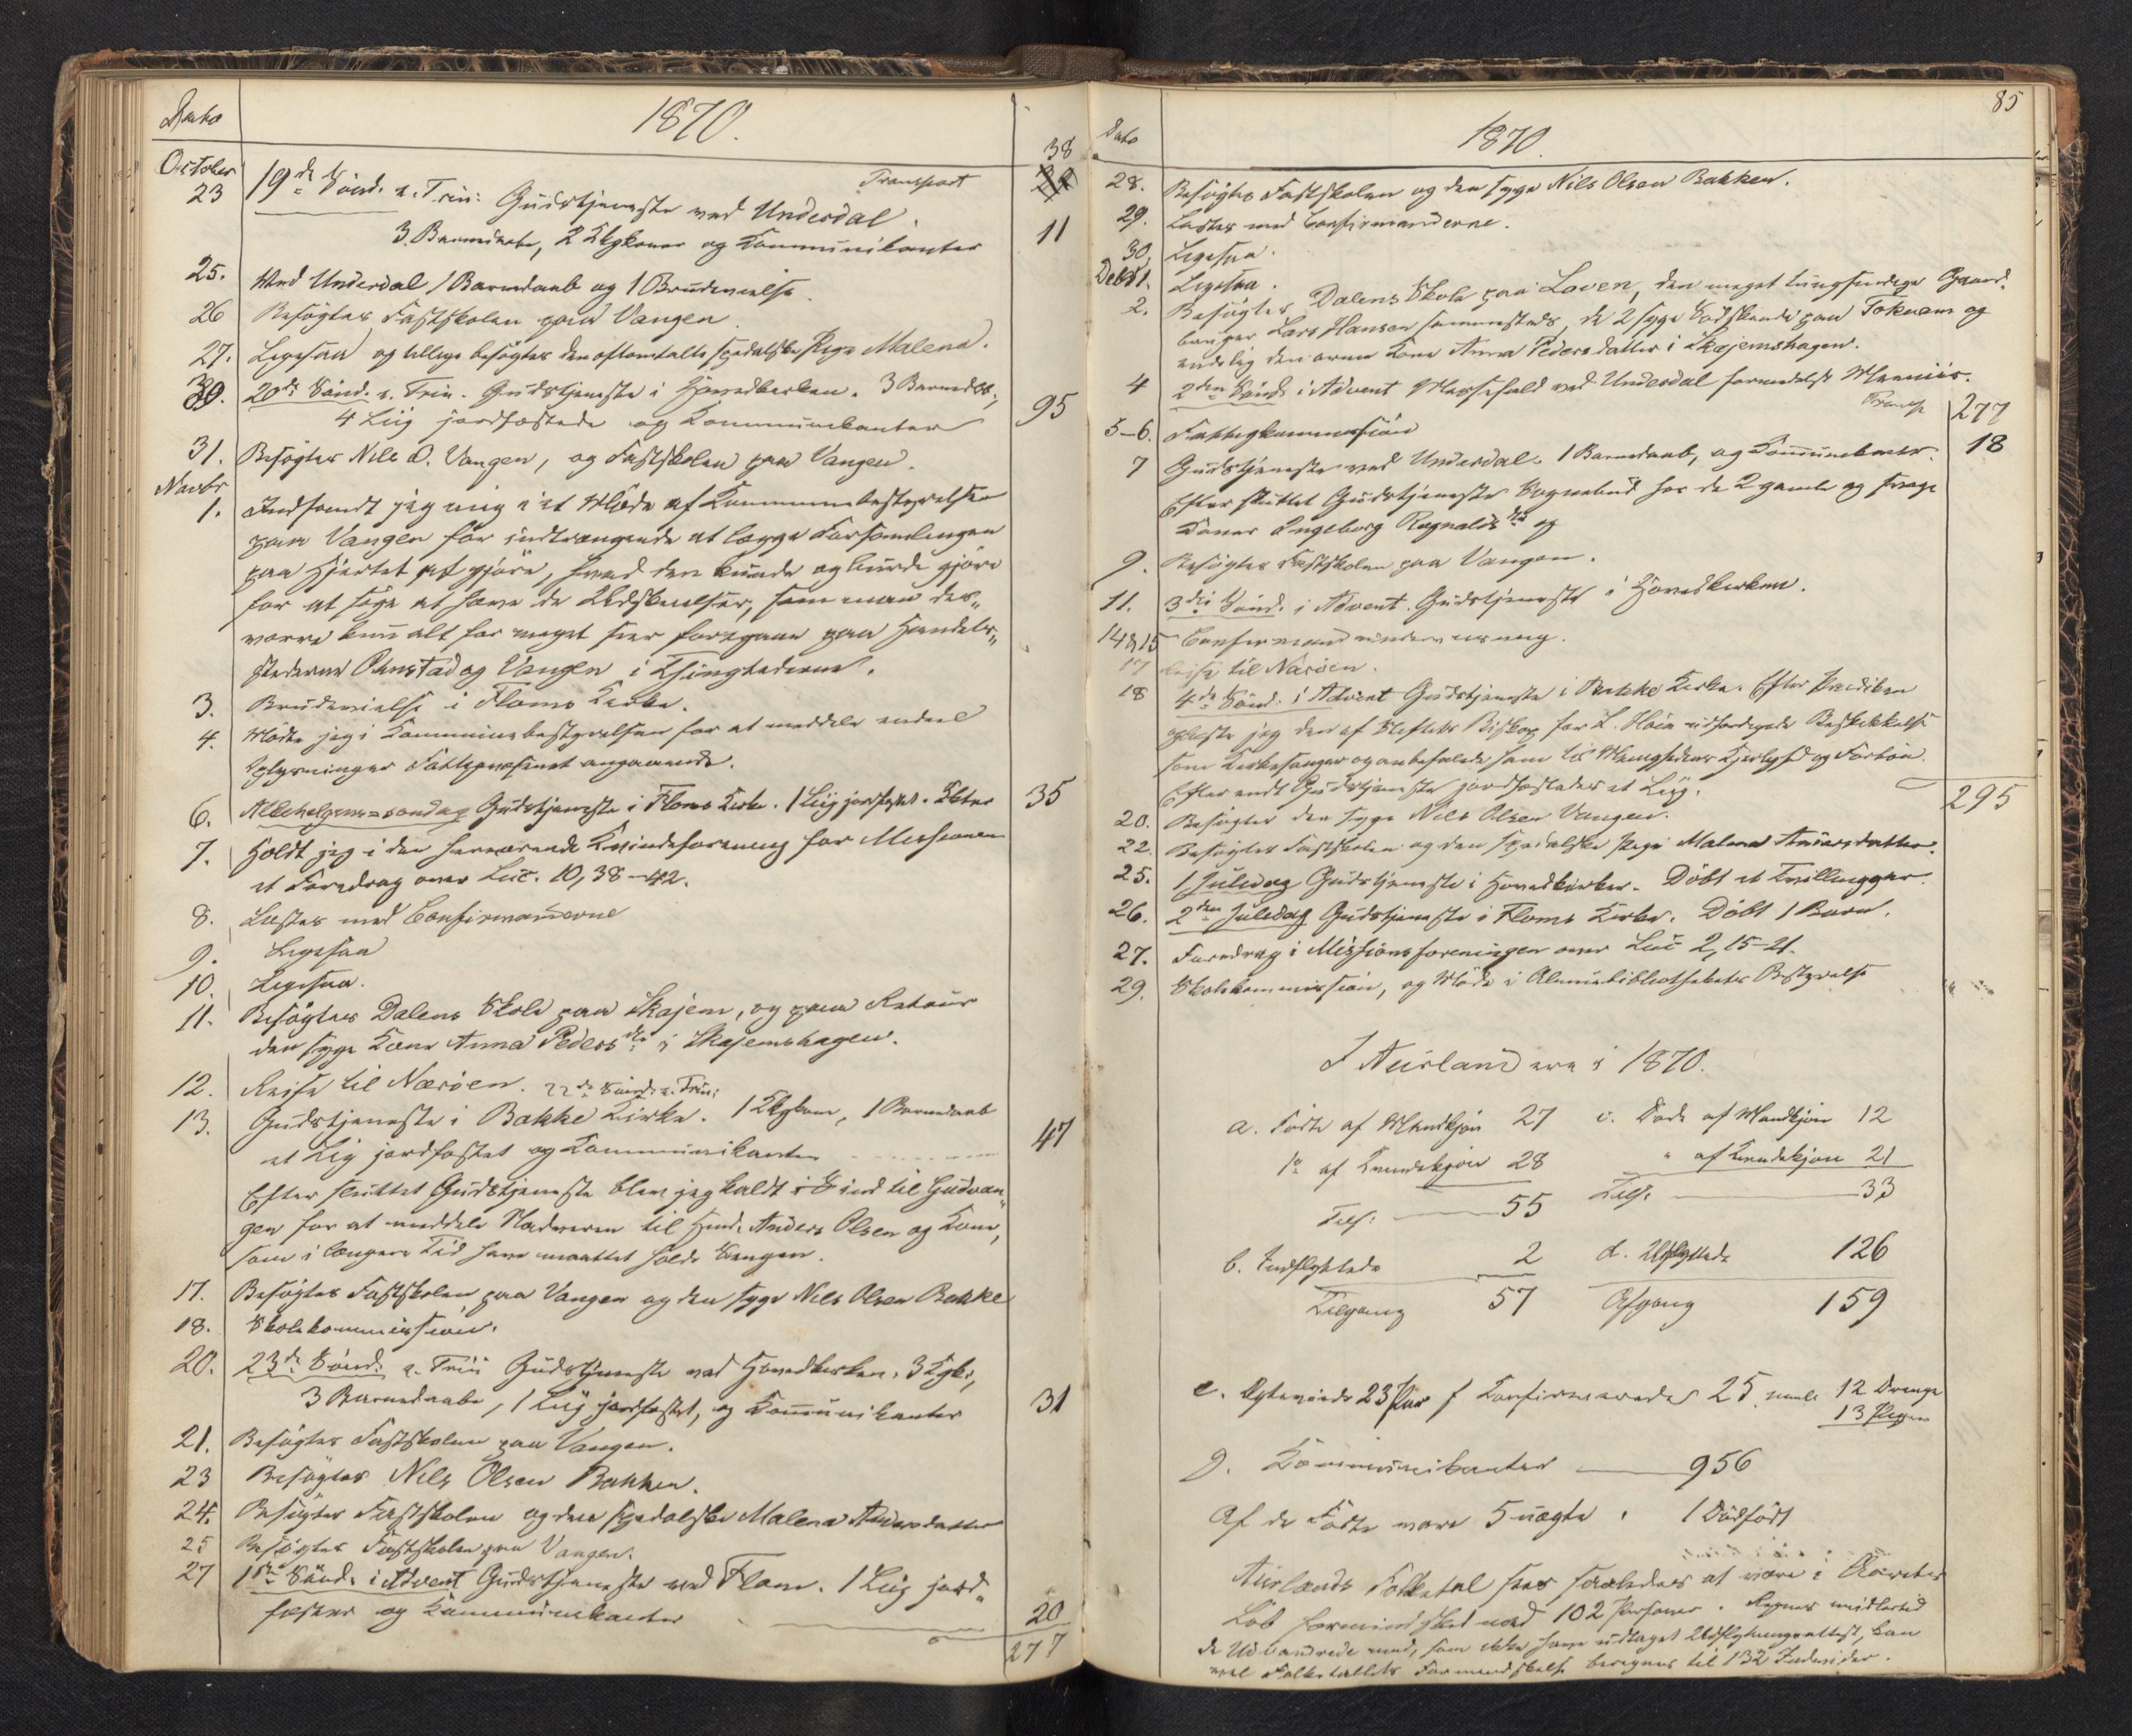 Dato
1870.
38
October
Transport
23
19de Sönd. e. Trin: Gudstjeneste ved Underdal.
3 Barnedaabe, 2 Kgkoner og Kommunikanter
11
25.
Ved Underdal 1 Barnedaab og 1 Brudevielse.
26
Besögtes Fastskolen paa Vangen.
27.
Ligesaa og tillige besögtes den oftomtalte spedalske Pige Malena.
30.
20de Sönd. e. Trin. Gudstjeneste i Hovedkirken. 3 Barnedaab,
4 Liig jordfæstede og Kommunikanter
95
31.
Besögtes Nils O. Vangen, og Fastskolen paa Vangen.
Novbr
1.
Indfandt jeg mig i et Möde af Kommunebestyrelsen
paa Vangen for indtrængende at lægge Forsamlingen
paa Hjertet at gjöre, hvad den kunde og burde gjöre
for at söge at hæve de Udskeielser, som man des-
værre kun alt for meget seer foregaae paa Handels-
stederne Ohnstad og Vangen i Thingtiderne.
3.
Brudevielse i Flaams Kirke.
4.
Mödte jeg i Kommunebestyrelsen for at meddele endeel
Oplysninger Fattigvæsenet angaaende.
6.
Allehelgens-søndag Gudstjeneste i Flaams Kirke. 1 Liig jordfæstet.
35
7.
Holdt jeg i den herværende Kvindeforening for Missionen
et Foredrag over Luc. 10, 38-42.
8.
Læstes med Confirmanderne
9.
Ligesaa
10.
Ligesaa.
11.
Besögtes Dalens Skole paa Skajem, og paa Retour
den syge Kone Anna Pedersdtr i Skajemshagen.
12.
Reise til Næröen. 22de Sönd. e. Trin:
13.
Gudstjeneste i Bakke Kirke. 1 Kgkone, 1 Barnedaab
et Lig jordfæstet og Kommunikanter
47
Efter sluttet Gudstjeneste blev jeg kaldt ind til Gudvan-
gen for at meddele Nadveren til Husm. Anders Olsen og Kone,
som i længere Tid have maattet holde Sengen.
17.
Besögtes Fastskolen paa Vangen og den syge Nils Olsen Bakke
18.
Skolekommission.
20.
23de Sönd. e. Trin Gudstjeneste ved Hovedkirken. 3 Kgk.,
3 Barnedaabe, 1 Liig jordfæstet, og Kommunikanter
31
21.
Besögtes Fastskolen paa Vangen.
23
Besögtes Nils Olsen Bakken.
24.
Besögtes Fastskolen og den spedalske Malena Andersdatter
25
Besögtes Fastskolen paa Vangen.
27
1ste Sönd. i Advent Gudstjeneste ved Flaam. 1 Liig jord-
fæstet og Kommunikanter
20
277
85
Dato
1870.
28.
Besögtes Fastskolen og den syge Nils Olsen Bakken.
29.
Læstes med Confirmanderne.
30.
Ligesaa.
Debr 1.
Ligesaa.
2.
Besögtes Dalens Skole paa Loven, den meget tungsindige Gaard-
bruger Lars Hansen sammesteds, de 2 syge Södskende paa Tokvam og
endelig den arme Kone Anna Pedersdatter i Skajemshagen.
4
2den Sönd. i Advent Messefald ved Underdal formedelst
Transp
277
5-6.
Fattigkommission
7
Gudstjeneste ved Underdal. 1 Barnedaab, og Kommunikanter
18
Efter sluttet Gudstjeneste Sognebud hos de 2 gamle og svage
Koner Ingeborg Ragnaldsdtr og
9.
Besögtes Fastskolen paa Vangen.
11.
3die Sönd. i Advent. Gudstjeneste i Hovedkirken.
14 & 15
Confirmandundervisning.
17
Reise til Næröen.
18
4de Sönd. i Advent Gudstjeneste i Bakke Kirke. Efter Prædiken
oplæste jeg den af Stiftets Biskop for L. Höia udfærdigede Beskikkelse
som Kirkesanger og anbefalede ham til Menighedens Kjerlighed og Forbön.
Efter endt Gudstjeneste jordfæstedes et Liig.
295
20.
Besögtes den syge Nils Olsen Vangen.
22.
Besögtes Fastskolen og den spedalske Pige Malena Andersdatter.
25.
1 Juledag Gudstjeneste i Hovedkirken. Döbt et Tvillingpar.
26.
2den Juledag Gudstjeneste i Flaams Kirke. Döbt 1 Barn.
27.
Foredrag i Missionsforeningen over Luc 2, 15-21.
29.
Skolekommission, og Möde i Almuebibliothekets Bestyrelse
I Aurland ere i 1870.
a. Födte af Mandkjön 27
c. Döde af Mandkjön 12
do af Kvindekjön 28
" af Kvindekjön 21
Tils. 55
Tils. 33
b. Indflyttede 2
d. Udflyttede 126
Tilgang 57
Afgang 159
e. Ægteviede 23 Par f Konfirmerede 25 neml. 12 Drenge
13 Piger
g. Kommunikanter 956
Af de Födte vare 5 uægte. 1 Dödfödt
Aurlands Folketal sees saaledes at være i Aarets
Löb formindsket med 102 Personer. Regnes imidlertid
de Udvandrede med, som ikke have udtaget Udflytningsattest, kan
vel Folketallets Formindskelse beregnes til 132 Individer.